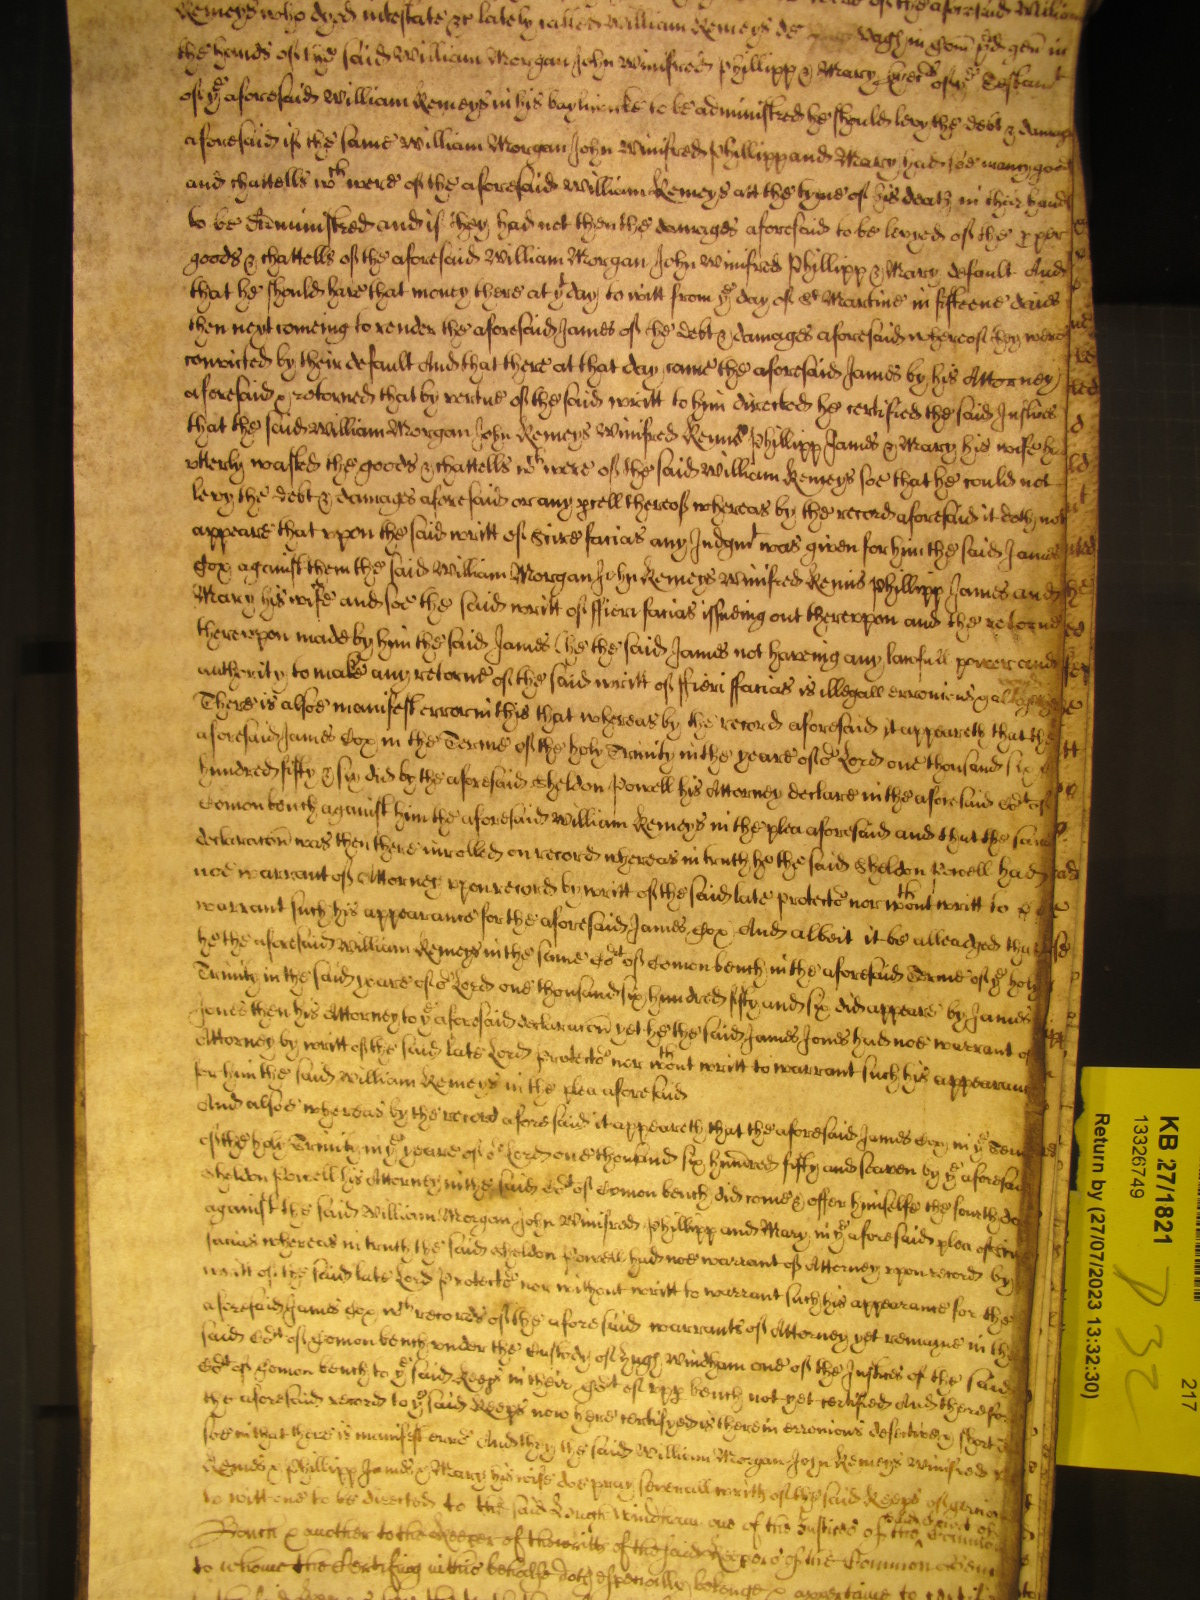 Kemeys who dyed intestate &c lately called William Kemeys de Vagh in Com pd gen in
the hands of the said William Morgan John Winifred Phillipp & Mary Execrs of ye Testamt
of ye aforesaid William Kemeys in his baylwicke to be administred he should levy the debt & damages
aforesaid if the same William Morgan John Winifred Phillipp and Mary had soe many goods
and chattells wch were of the aforesaid William Kemeys att the tyme of his death in their hands
to be Administred and if they had not then the damages aforesaid to be levyed of the pper
goods & chattells of the aforesaid William Morgan John Winifred Phillipp & Mary default And
that he should have that money there at yt day to witt from ye day of St Martine in fifteene daies
then next comeing to render the aforesaid James of the debt & damages aforesaid whereof they were
convicted by their default And that there at that day came the aforesaid James by his Attorney
aforesaid & retorned that by vertue of the said writt to him directed he certified the said Justices
that the said William Morgan John Kemeys Winifred Kemis Phillipp James & Mary his wife had
utterly wasted the goods & chattells wch were of the said William Kemeys soe that he could not
levy the debt & damages aforesaid or any pcell thereof whereas by the record aforesaid it doth not
appeare that upon the said writt of Scire facias any Judgmt was given for him the said James
Cox against them the said William Morgan John Kemeys Winifred Kemis Phillipp James and
Mary his wife and soe the said writt of ffieri facias issueing out thereupon and the retorne
thereupon made by him the said James (he the said James not haveing any lawfull power and
authority to make any retorne of the said writt of ffieri ffacias is illegall erronious &
There is alsoe manifest error in this that whereas by the record aforesaid it appeareth that the
aforesaid James Cox in the Terme of the holy Trinity in the yeare of or Lord one thousand six
hundred fifty & six did by the aforesaid Sheldon Powell his Attorney declare in the aforesaid Cort of
Comon bench against him the aforesaid William Kemeys in the plea aforesaid and that the said
declaracon was then there inrolled on record whereas in truth he the said Sheldon Powell had
noe warrant of Attorney upon record by writt of the said late protector nor wthout writt to
warrant such his appearance for the aforesaid James Cox And albeit it be alleadged that
he the aforesaid William Kemeys in the same Cort of Comon bench in the aforesaid Terme of ye holy
Trinity in the said yeare of or Lord one thousand six hundred fifty and six did appeare by James
Jones then his Attorney to ye aforesaid declaracon yet he the said James Jones had noe warrant of
Attorney by writt of the said late Lord Protector nor wthout writt to warrant such his appearance
for him the said William Kemeys in the plea aforesaid
And alsoe whereas by the record aforesaid it appeareth that the aforesaid James Cox in ye Terme
of the holy Trinity in ye yeare of or Lord one thousand six hundred fifty and seaven by ye aforesaid
Sheldon Powell his Attorney in the said Cort of Comon bench did come & offer himselfe the fourth day
against the said William Morgan John Winifred Phillipp and Mary in ye aforesaid plea of Scire
facias whereas in truth the said Sheldon Powell had noe warrant of Attorney upon record by
writt of the said late Lord Protector nor without writt to warrant such his appearance for the
aforesaid James Cox wch records of the aforesaid warrants of Attorney yet remaine in the
said Cort of Comon bench under the Custody of Hugh Windham one of the Justices of the said
Cort of Comon bench to ye said Keeps in their Cort of upp bench not yet certified And therefore
the aforesaid record to ye said Keeps now here certifyed is therein erronious defective & short
soe in that there is manifest error And they the said William Morgan John Kemeys Winifred
Kemis & Phillipp James & Mary his wife doe pray severall writts of the said Keeps of
to witt one to be directed to the said Hugh Windham one of the Justices of the said Court of Common
Bench & another to the Keeper of the writts of the said Keepers of the Common Bench
to whome the Certifing in this behalfe doth especially belonge & appertaine to
KB 27/1821
13326749
Return by (27/07/2023 13:32:30)
217
P 32